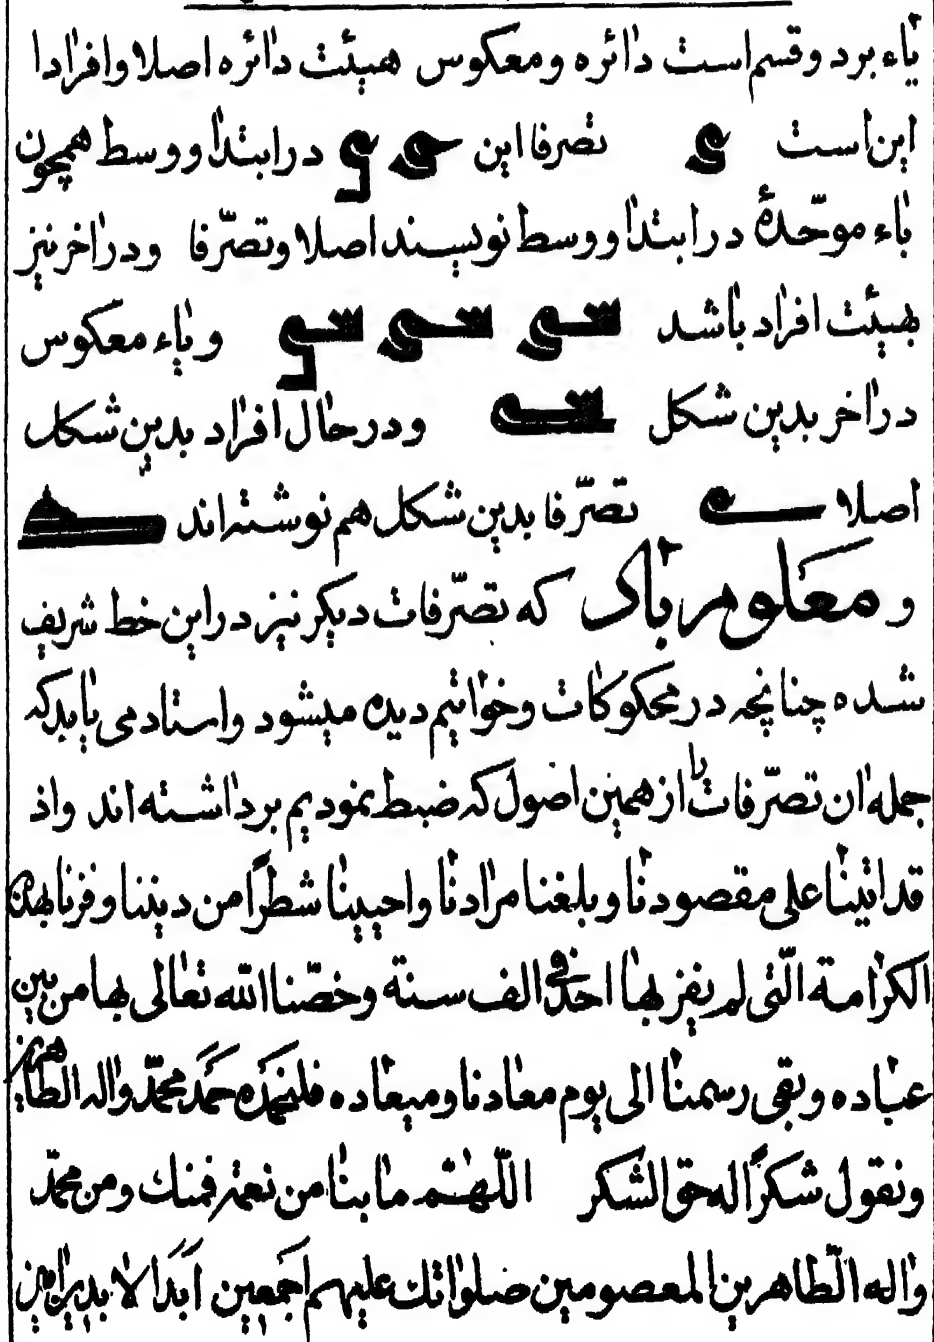 یاء بر دو قسم است دائره و معکوس هیئت دائره اصلا و افرادا
این است ی تصرفا این ی ی در ابتدا و وسط همچون
باء موحّدهٔ در ابتدا و وسط نویسند اصلا و تصرّفا و در اخر نیز
بهیئت افراد باشد سی سی سی و یاء معکوس
در اخر بدین شکل سے و در حال افراد بدین شکل
اصلا ے تصرّفا بدین شکل هم نوشته اند
و معلوم باد که تصرّفات دیکر نیز در این خط شریف
شده چنانچه در محکوکات و خواتیم دیده میشود و استاد می باید که
جمله ان تصرّفات را از همین اصول که ضبط نمودیم برداشته اند و اذ
قد اتینا علی مقصودنا و بلغنا مرادنا و احیینا شطرًا من دیننا و فزنا بهذه
الکرامة الّتی لم یفز بها احد فی الف سنة و خصّنا الله تعالی بها من بین
عباده و بقی رسمنا الی یوم معادنا و میعاده فلنحمده حمد محمّد واله الطاهرین
و نقول شکرًا له حق الشکر اللّهم ما بنا من نعمة فمنك و من محمّد
واله الطّاهرین المعصومین صلواتك علیهم اجمعین ابدَ الابدین امین